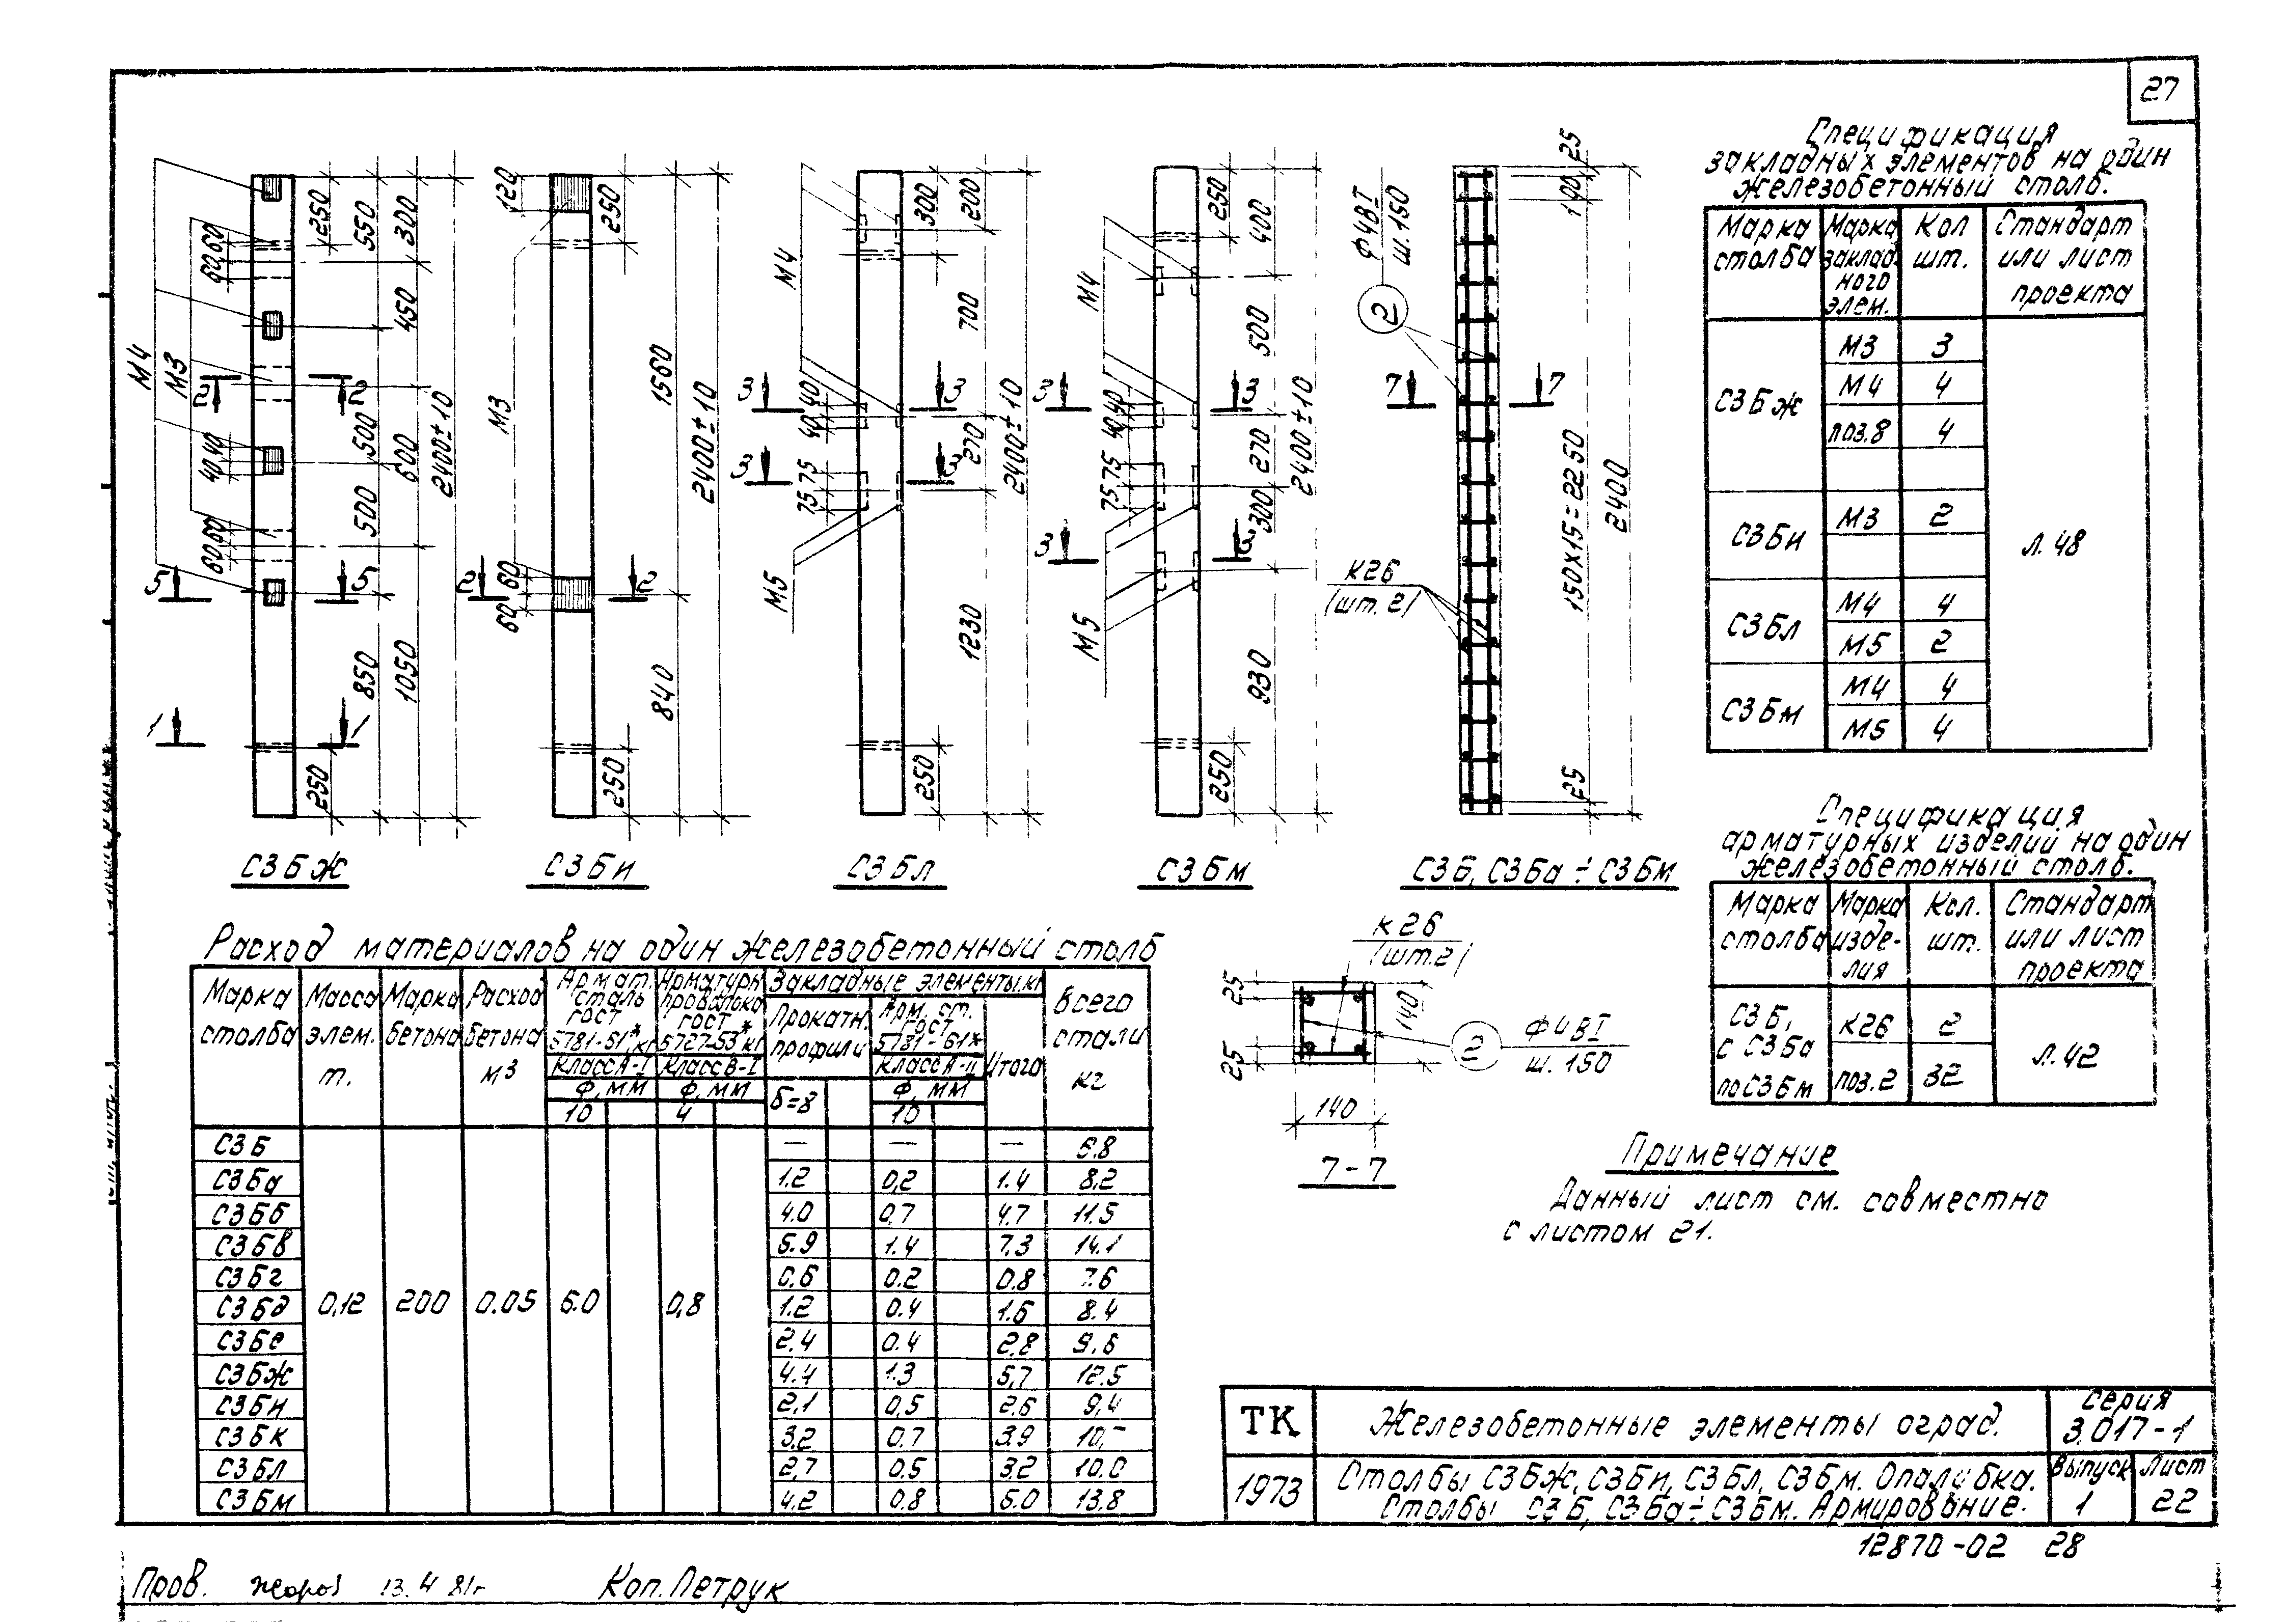 27
Спецификация
закладных элементов на один
железобетонный столб.
Марка столба
Марка заклад. ного элем.
Кол шт.
Стандарт или лист проекта
С3Бж
М3 3
М4 4
поз.8 4
С3Би
М3 2
С3Бл
М4 4
М5 2
С3Бм
М4 4
М5 4
л.48
М4
М3
250
550
300
60 60
60
450
2 2
500
600
2400±10
40 40
500
60
5 5
850
1050
1 1
250
С3Бж
120
250
М3
1560
2400±10
2 2
60
60
840
250
С3Би
М4
300
200
700
3 3
40 40
270
2400±10
3 3
75 75
М5
1230
250
С3Бл
М4
250
400
500
3 3
40 40
270
2400±10
75 75
300
3
М5
930
250
С3Бм
Ф4ВI
ш.150
25
100
2
7 7
150х15=2250
2400
К26
(шт.2)
25
С3Б, С3Ба÷С3Бм
Спецификация
арматурных изделий на один
железобетонный столб.
Марка столба
Марка изде-лия
Кол. шт.
Стандарт или лист проекта
С3Б,
с С3Ба
по С3Бм
К26 2
поз.2 32
л.42
К26
(шт.2)
25
140
25
2
Ф4ВI
ш.150
140
7-7
Примечание
Данный лист см. совместно
с листом 21.
Расход материалов на один железобетонный столб
Марка столба
Масса элем. т.
Марка бетона
Расход бетона м3
Армат. сталь гост 5781-61* кг
класс А-I
Ф, мм
10
Арматурн проволока гост* 6727-53 кг
класс В-I
Ф, мм
4
Закладные элементы.кг
Прокатн. профили
δ=8
Арм. ст. гост 5781-61*
класс А-II
Ф, мм
10
Итого
Всего стали кг
0,12 200 0.05 6.0 0,8
С3Б — — — 6.8
С3Ба 1.2 0,2 1.4 8,2
С3Бб 4.0 0,7 4,7 11.5
С3Бв 5.9 1.4 7,3 14.1
С3Бг 0,6 0.2 0.8 7.6
С3Бд 1.2 0.4 1.6 8.4
С3Бе 2,4 0.4 2.8 9.6
С3Бж 4.4 1.3 5,7 12.5
С3Би 2,1 0,5 2.6 9,4
С3Бк 3,2 0.7 3.9
С3Бл 2,7 0,5 3.2 10,0
С3Бм 4.2 0.8 5.0 13.8
ТК
Железобетонные элементы оград.
серия
3.017-1
1973
Столбы С3Бж, С3Би, С3Бл, С3Бм. Опалубка.
Столбы С3Б, С3Ба÷С3Бм. Армирование.
Выпуск
1
Лист
22
12870-02 28
Пров. 13.4 81г
Коп. Петрук